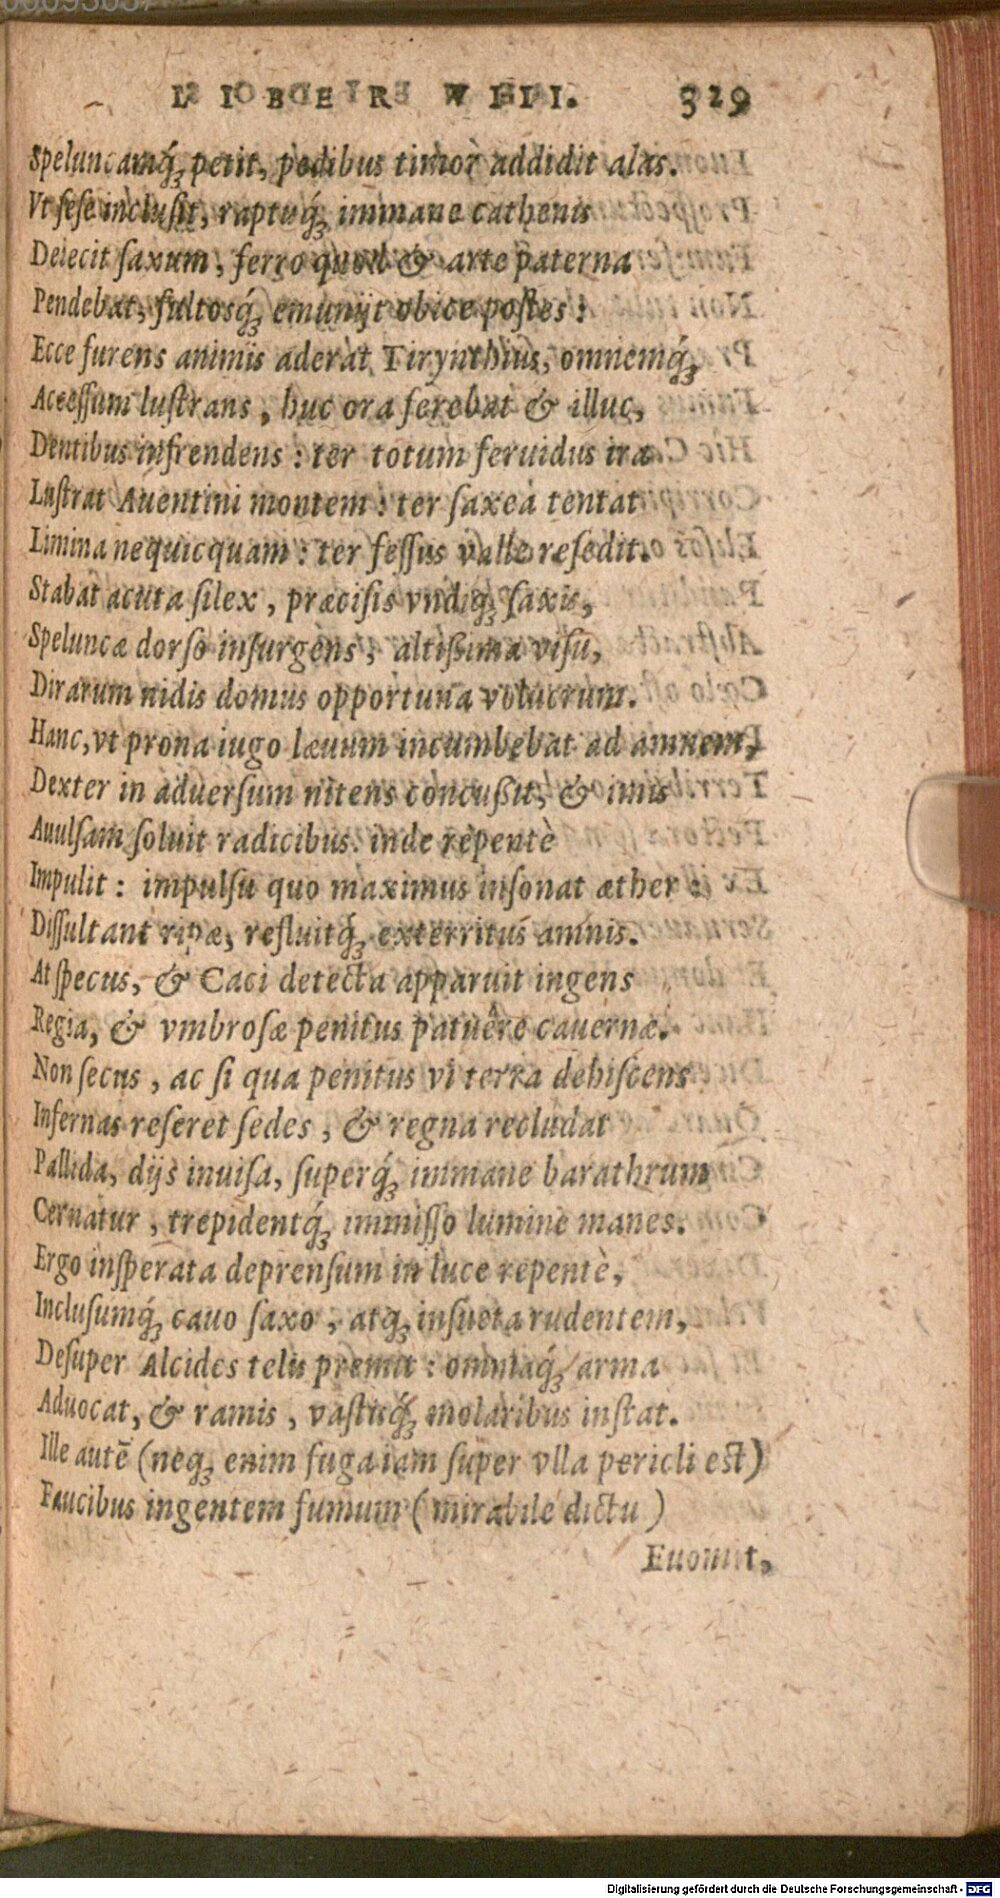 LIBER VIII. 329
Speluncamq́; petit, pedibus timor addidit alas.
Vt sese inclusit, ruptisq́; immane cathenis
Deiecit saxum, ferro quod & arte paterna
Pendebat, fultosq́; emunijt obice postes:
Ecce furens animis aderat Tirynthius, omnemq́;
Accessum lustrans, huc ora ferebat & illuc,
Dentibus infrendens: ter totum feruidus ira
Lustrat Auentini montem: ter saxea tentat
Limina nequicquam: ter fessus valle resedit.
Stabat acuta silex, præcisis vndiq; saxis,
Speluncæ dorso insurgens, altißima visu,
Dirarum nidis domus opportuna volucrum.
Hanc, vt prona iugo læuum incumbebat ad amnem,
Dexter in aduersum nitens concußit, & imis
Auulsam soluit radicibus. inde repentè
Impulit: impulsu quo maximus insonat æther:
Dissultant ripæ, refluitq́; exterritus amnis.
At specus, & Caci detecta apparuit ingens
Regia, & vmbrosæ penitus patuêre cauernæ.
Non secus, ac si qua penitus vi terra dehiscens
Infernas reseret sedes, & regna recludat
Pallida, dijs inuisa, superq́; immane barathrum
Cernatur, trepidentq́; immisso lumine manes.
Ergo insperata deprensum in luce repentè,
Inclusumq́; cauo saxo, atq; insueta rudentem,
Desuper Alcides telis premit: omniaq́; arma
Aduocat, & ramis, vastisq́; molaribus instat.
Ille autē (neq; enim fuga iam super vlla pericli est)
Faucibus ingentem fumum (mirabile dictu)
Euomit,
Digitalisierung gefördert durch die Deutsche Forschungsgemeinschaft - DFG